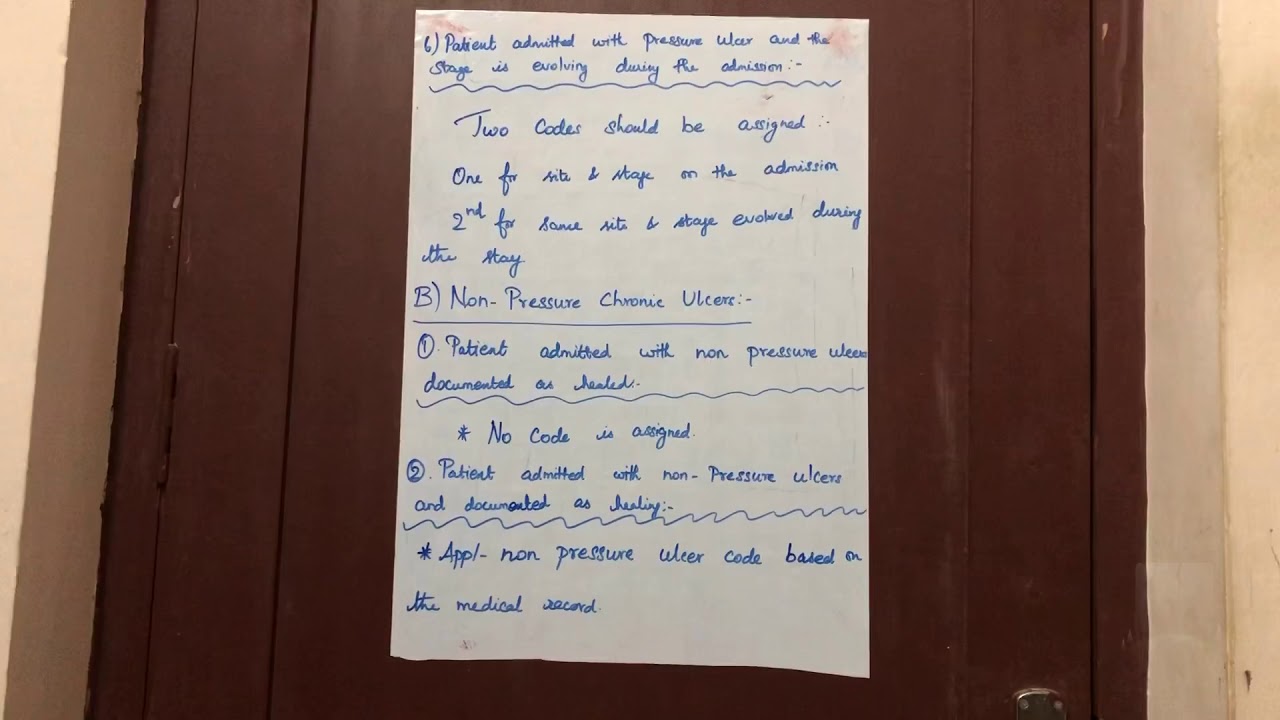 6) Patient admitted with Pressure Ulcer and the
stage is evolving during the admission:-
Two Codes should be assigned :-
One for site & stage on the admission
2nd for same site & stage evolved during
the stay
B) Non-Pressure Chronic Ulcers:-
① Patient admitted with non pressure ulcers
documented as healed:-
* No Code is assigned.
② Patient admitted with non-Pressure ulcers
and documented as healing:-
* App/- non pressure ulcer code based on
the medical record.